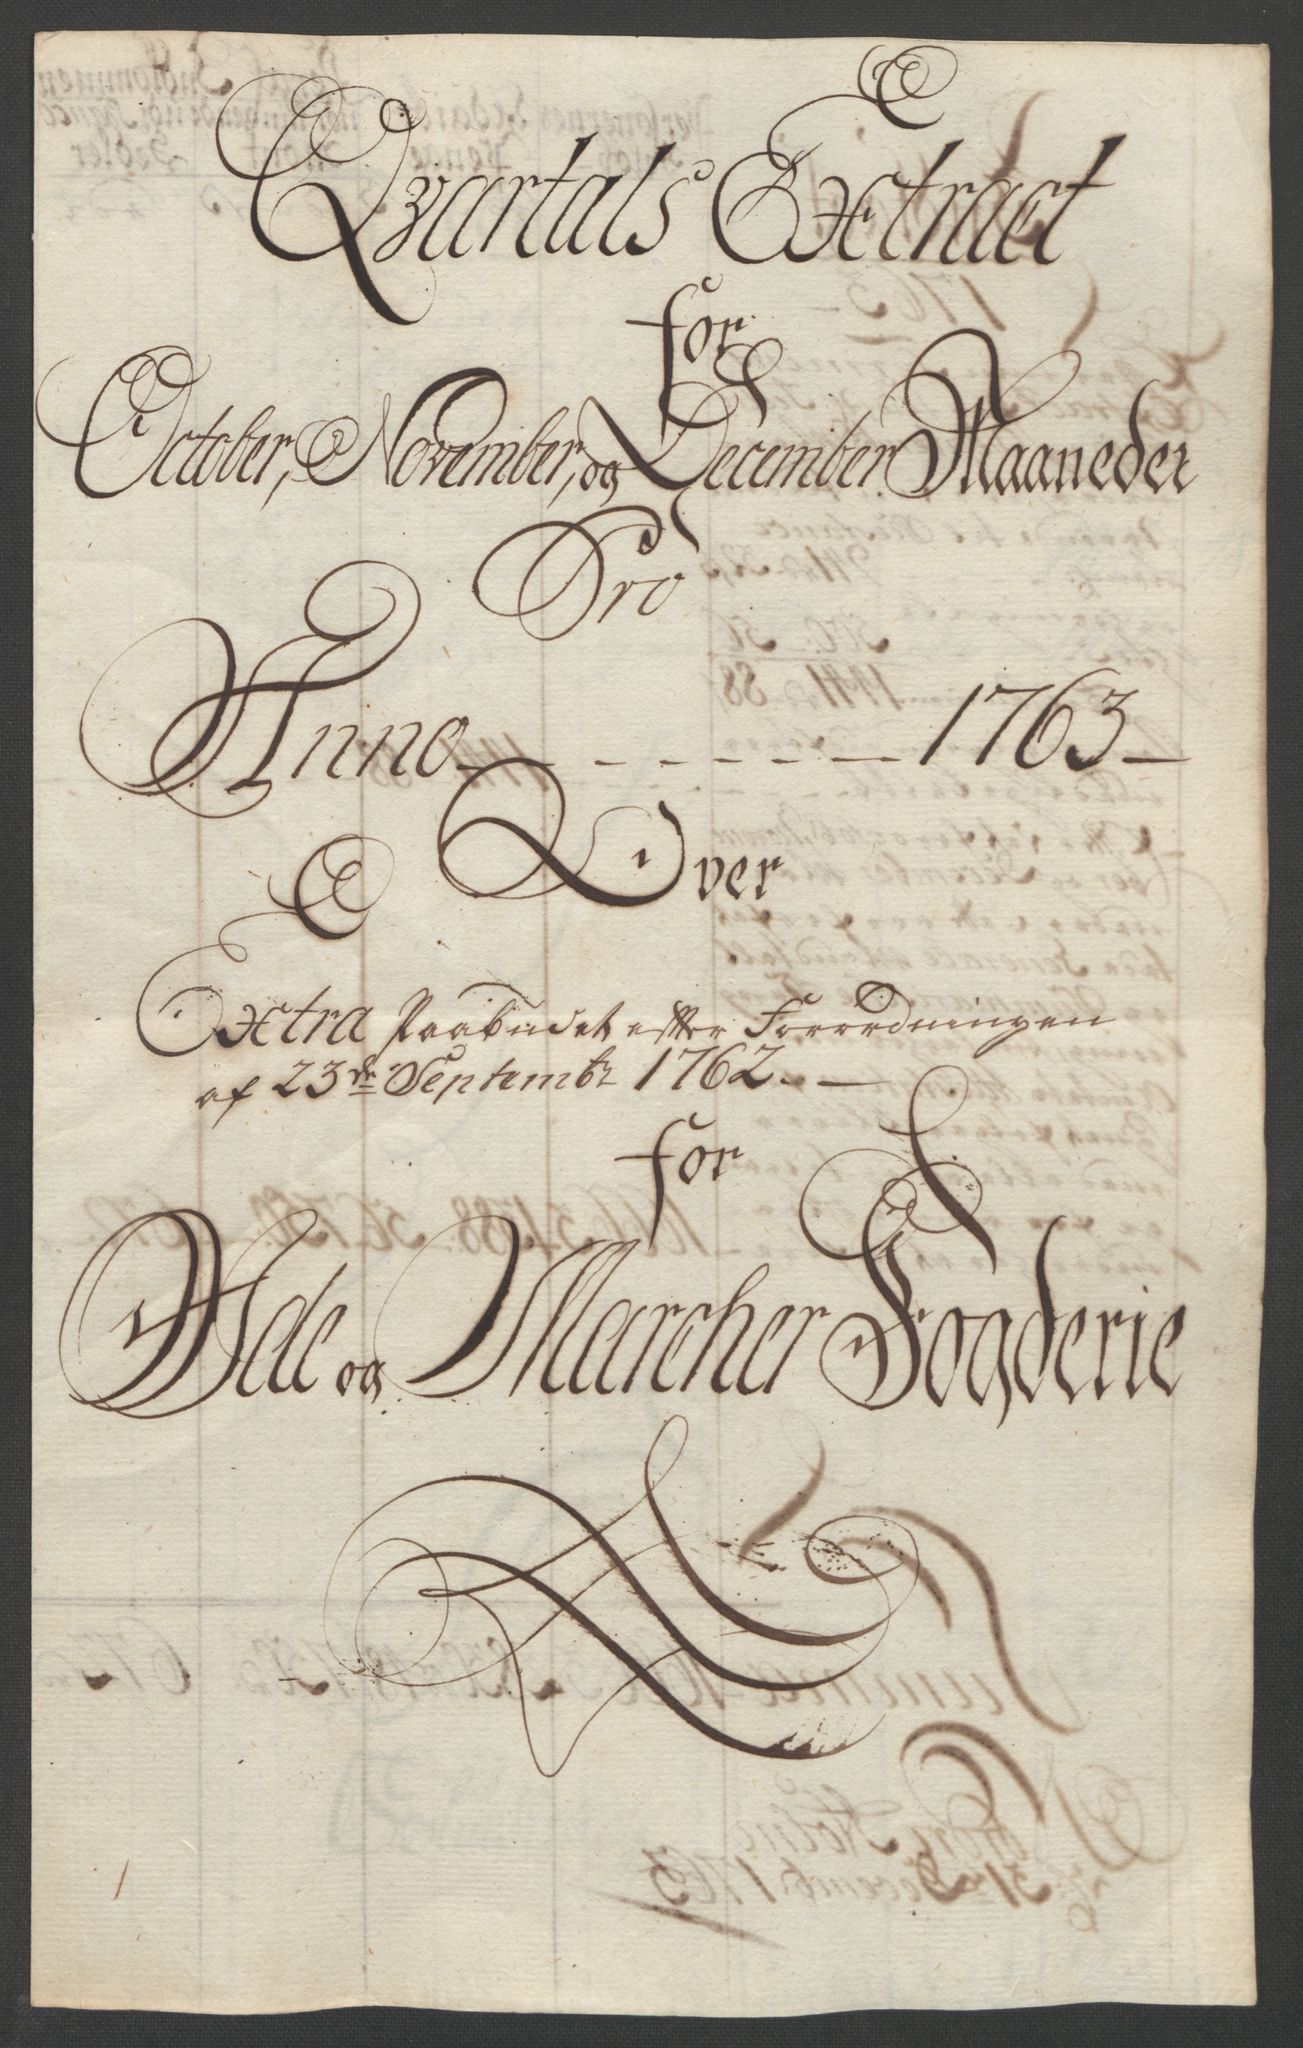 Qvartals Extract
for
October, November, og December Maaneder
Pro
Anno - - - - - - - 1763 -
Over
Extra Paabudet efter Forordningen
af 23de Septembr 1762. -
for
Ide og Marcher Fogderie